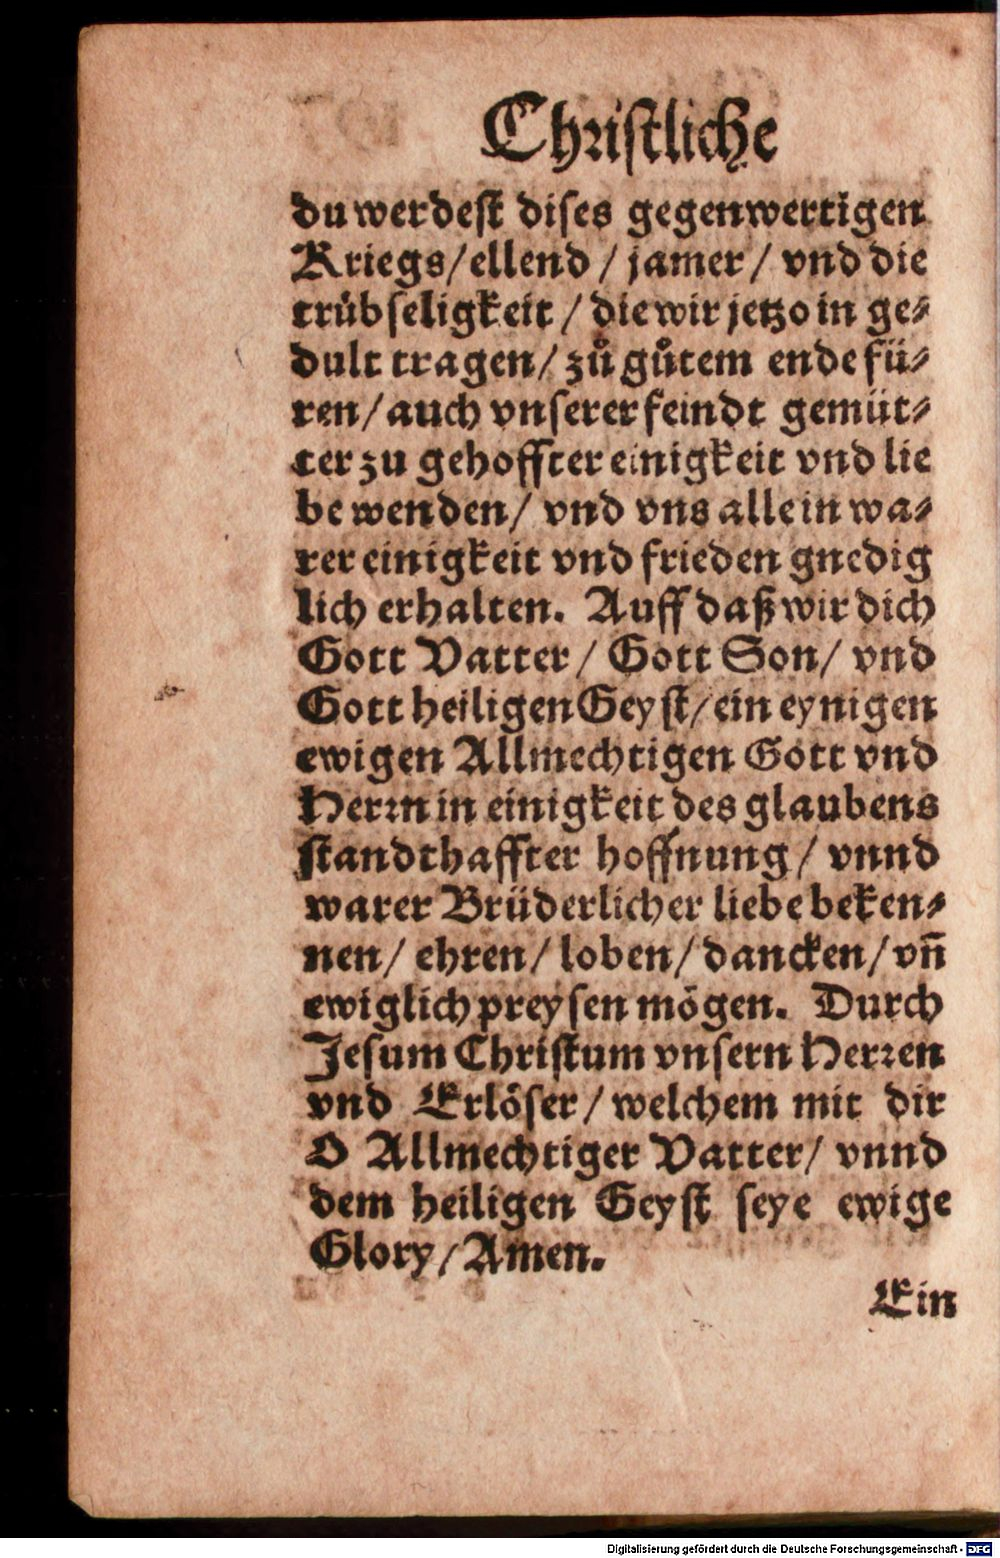 Christliche
du werdest dises gegenwertigen
Kriegs/ ellend / jamer/ vnd die
trůbseligkeit / die wir jetzo in ge⸗
dult tragen/ zů gůtem ende fü⸗
ren/ auch vnserer feindt gemüt⸗
ter zu gehoffter einigkeit vnd lie
be wenden/ vnd vns alle in wa⸗
rer einigkeit vnd frieden gnedig
lich erhalten. Auff daß wir dich
Gott Vatter/ Gott Son/ vnd
Gott heiligen Geyst/ ein eynigen
ewigen Allmechtigen Gott vnd
Herrn in einigkeit des glaubens
standthaffter hoffnung/ vnnd
warer Brüderlicher liebe beken⸗
nen/ ehren/ loben/ dancken/ vñ
ewiglich preysen mögen. Durch
Jesum Christum vnsern Herren
vnd Erlöser/ welchem mit dir
O Allmechtiger Vatter/ vnnd
dem heiligen Geyst seye ewige
Glory/ Amen.
Ein
Digitalisierung gefördert durch die Deutsche Forschungsgemeinschaft - DFG